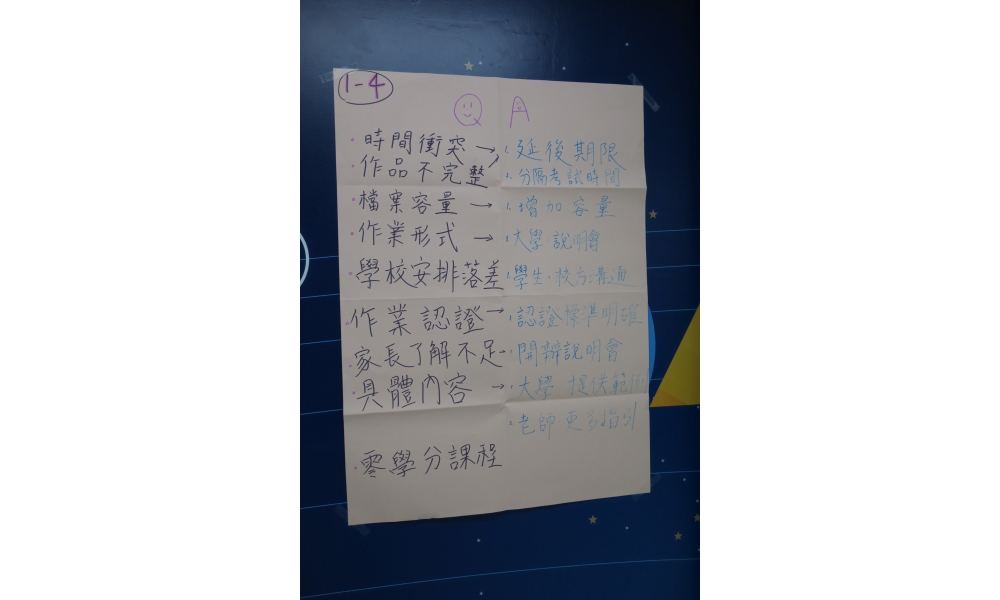 1-4
Q A
時間衝突 → 延後期限
作品不完整 分隔考試時間
檔案容量 → 增加容量
作業形式 → 大學說明會
學校安排落差 學生、校方溝通
作業認證 → 認證標準明確
家長了解不足 開辦說明會
具體內容 → 大學 提供範例
老師更多指引
零學分課程